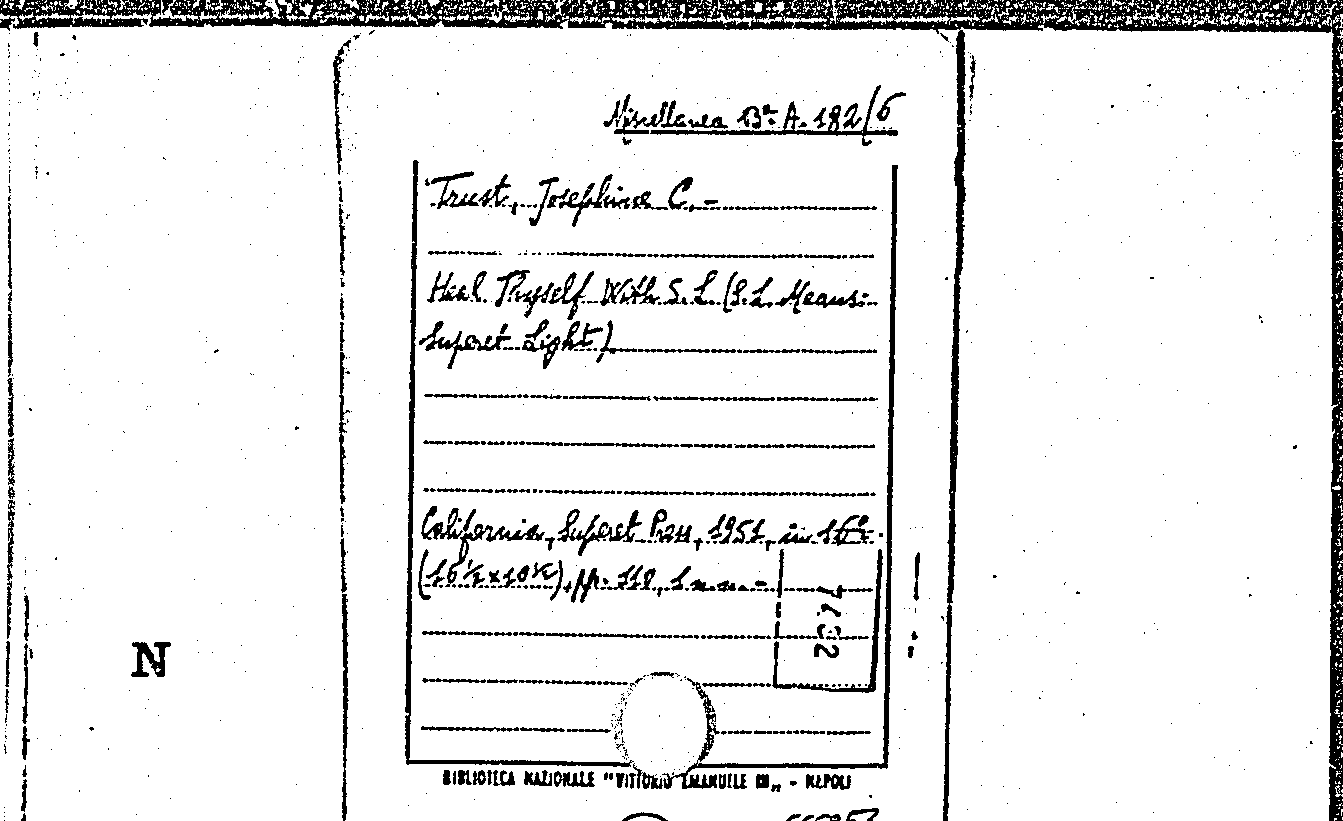 Miscellanea Bª A. 182/6
Trust, Josephine C. -
Heal Thyself With S. L. (S. L. Means:
Superet Light)
California, Superet Press, 1951, in 16º.
(16 ½ x 10 ½), pp. 110, 1 n. n. -
N
BIBLIOTECA NAZIONALE "VITTORIO EMANUELE III„ - NAPOLI